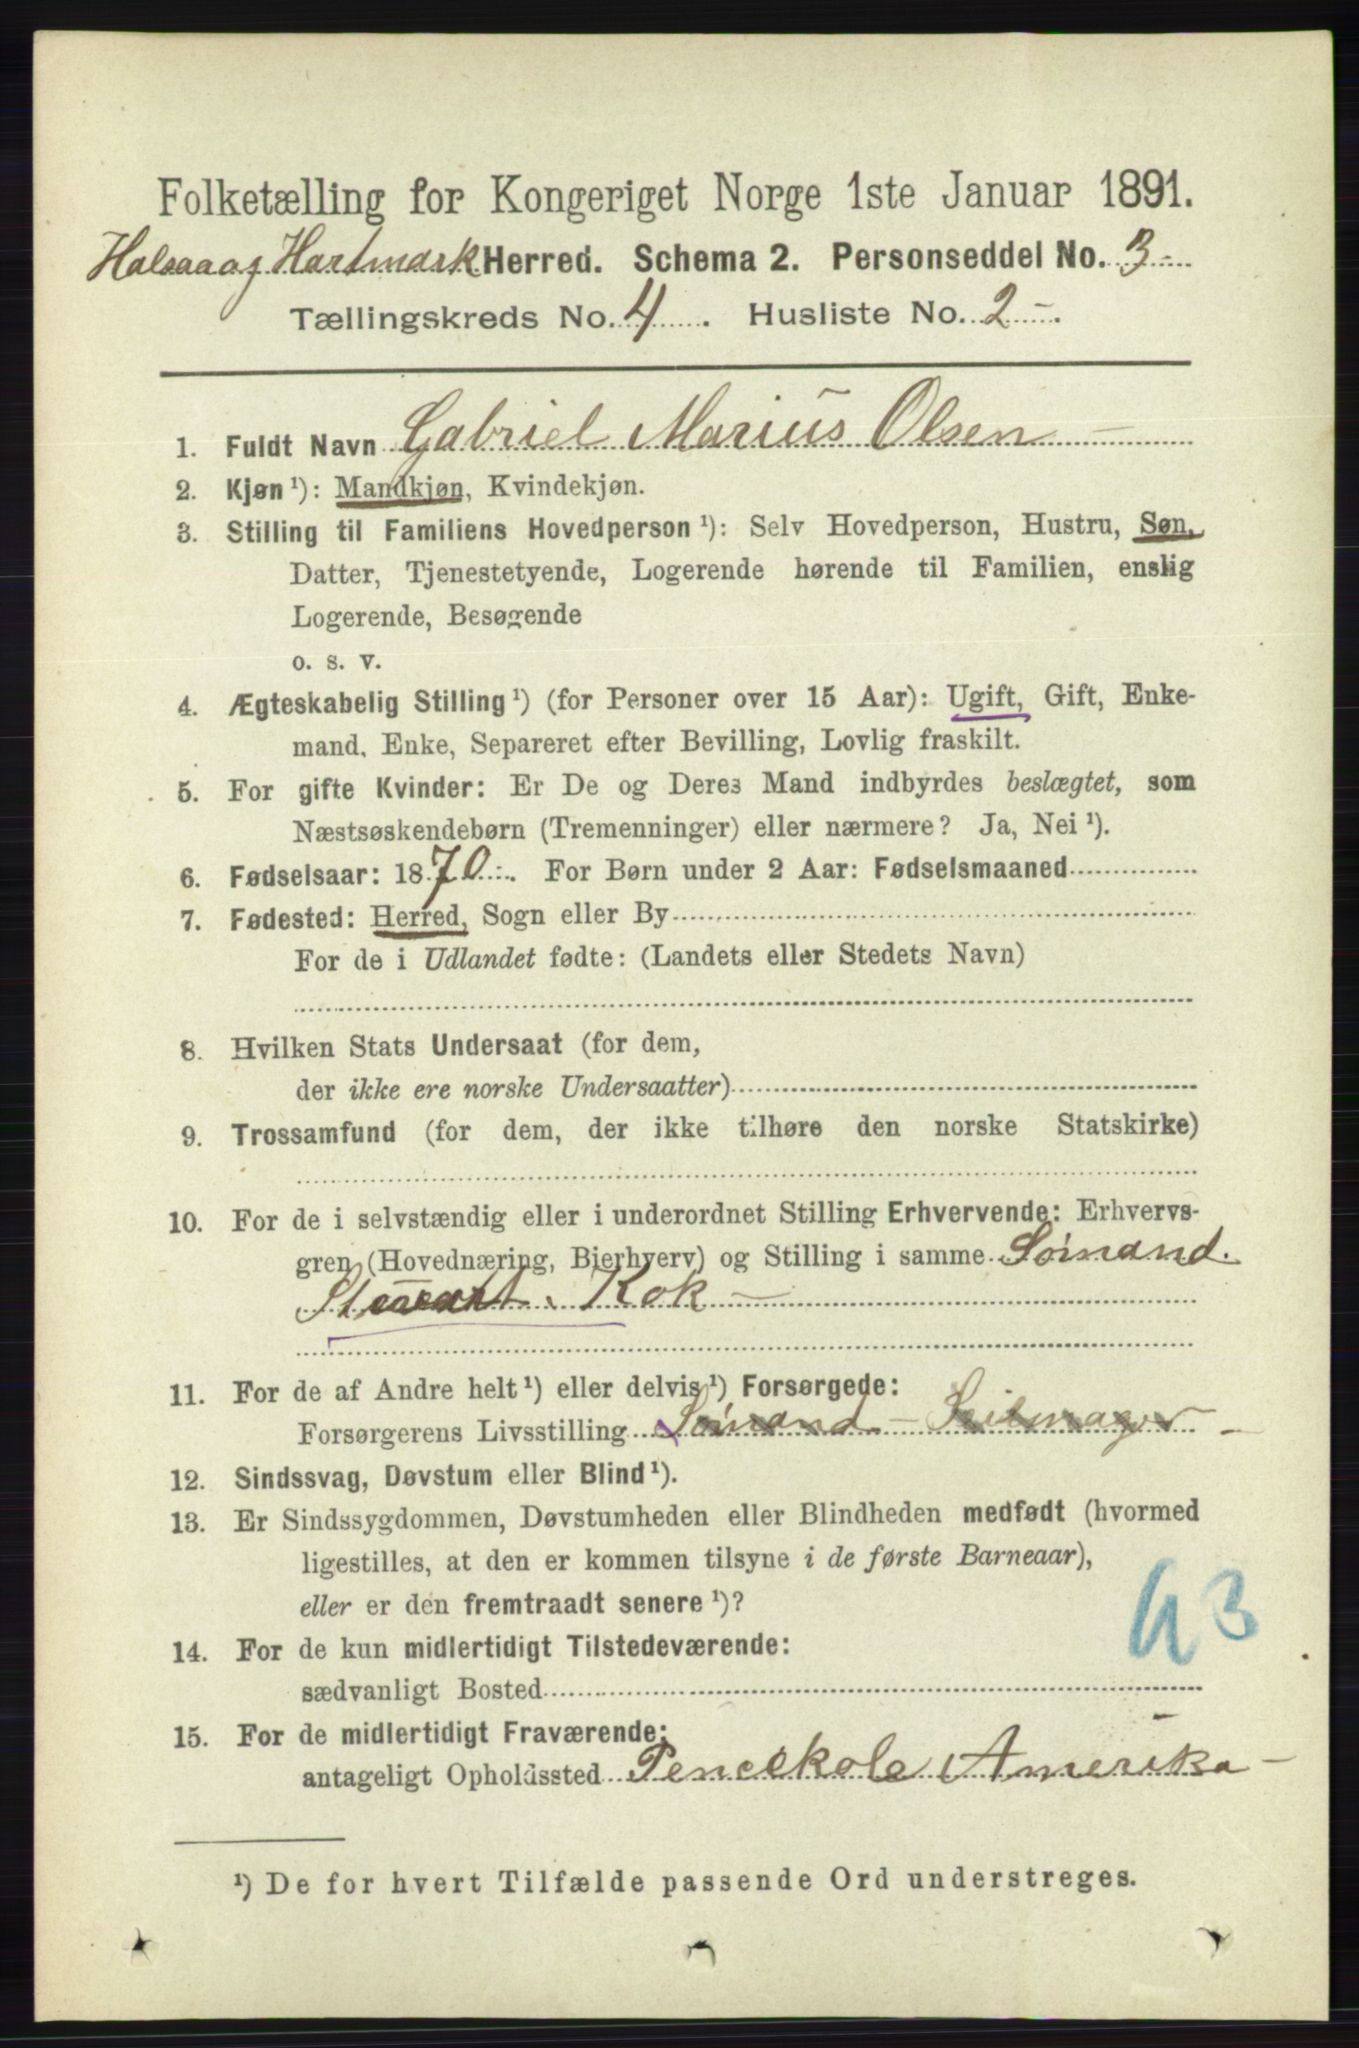 Folketælling for Kongeriget Norge 1ste Januar 1891.
Halsaa og Hartmark Herred. Schema 2. Personseddel No. 3
Tællingskreds No. 4. Husliste No. 2.
1. Fuldt Navn Gabriel Marius Olsen
2. Kjøn ¹): Mandkjøn, Kvindekjøn.
3. Stilling til Familiens Hovedperson ¹): Selv Hovedperson, Hustru, Søn,
Datter, Tjenestetyende, Logerende hørende til Familien, enslig
Logerende, Besøgende
o. s. v.
4. Ægteskabelig Stilling ¹) (for Personer over 15 Aar): Ugift, Gift, Enke-
mand, Enke, Separeret efter Bevilling, Lovlig fraskilt.
5. For gifte Kvinder: Er De og Deres Mand indbyrdes beslægtet, som
Næstsøskendebørn (Tremenninger) eller nærmere? Ja, Nei ¹).
6. Fødselsaar: 1870. For Børn under 2 Aar: Fødselsmaaned
7. Fødested: Herred, Sogn eller By
For de i Udlandet fødte: (Landets eller Stedets Navn)
8. Hvilken Stats Undersaat (for dem,
der ikke ere norske Undersaatter)
9. Trossamfund (for dem, der ikke tilhøre den norske Statskirke)
10. For de i selvstændig eller i underordnet Stilling Erhvervende: Erhvervs-
gren (Hovednæring, Bierhverv) og Stilling i samme Sømand.
Kok
11. For de af Andre helt ¹) eller delvis ¹) Forsørgede:
Forsørgerens Livsstilling Sømand - Seilmager
12. Sindssvag, Døvstum eller Blind ¹).
13. Er Sindssygdommen, Døvstumheden eller Blindheden medfødt (hvormed
ligestilles, at den er kommen tilsyne i de første Barneaar),
eller er den fremtraadt senere ¹)?
14. For de kun midlertidigt Tilstedeværende:
sædvanligt Bosted
15. For de midlertidigt Fraværende:
antageligt Opholdssted Pencekole Amerika
¹) De for hvert Tilfælde passende Ord understreges.